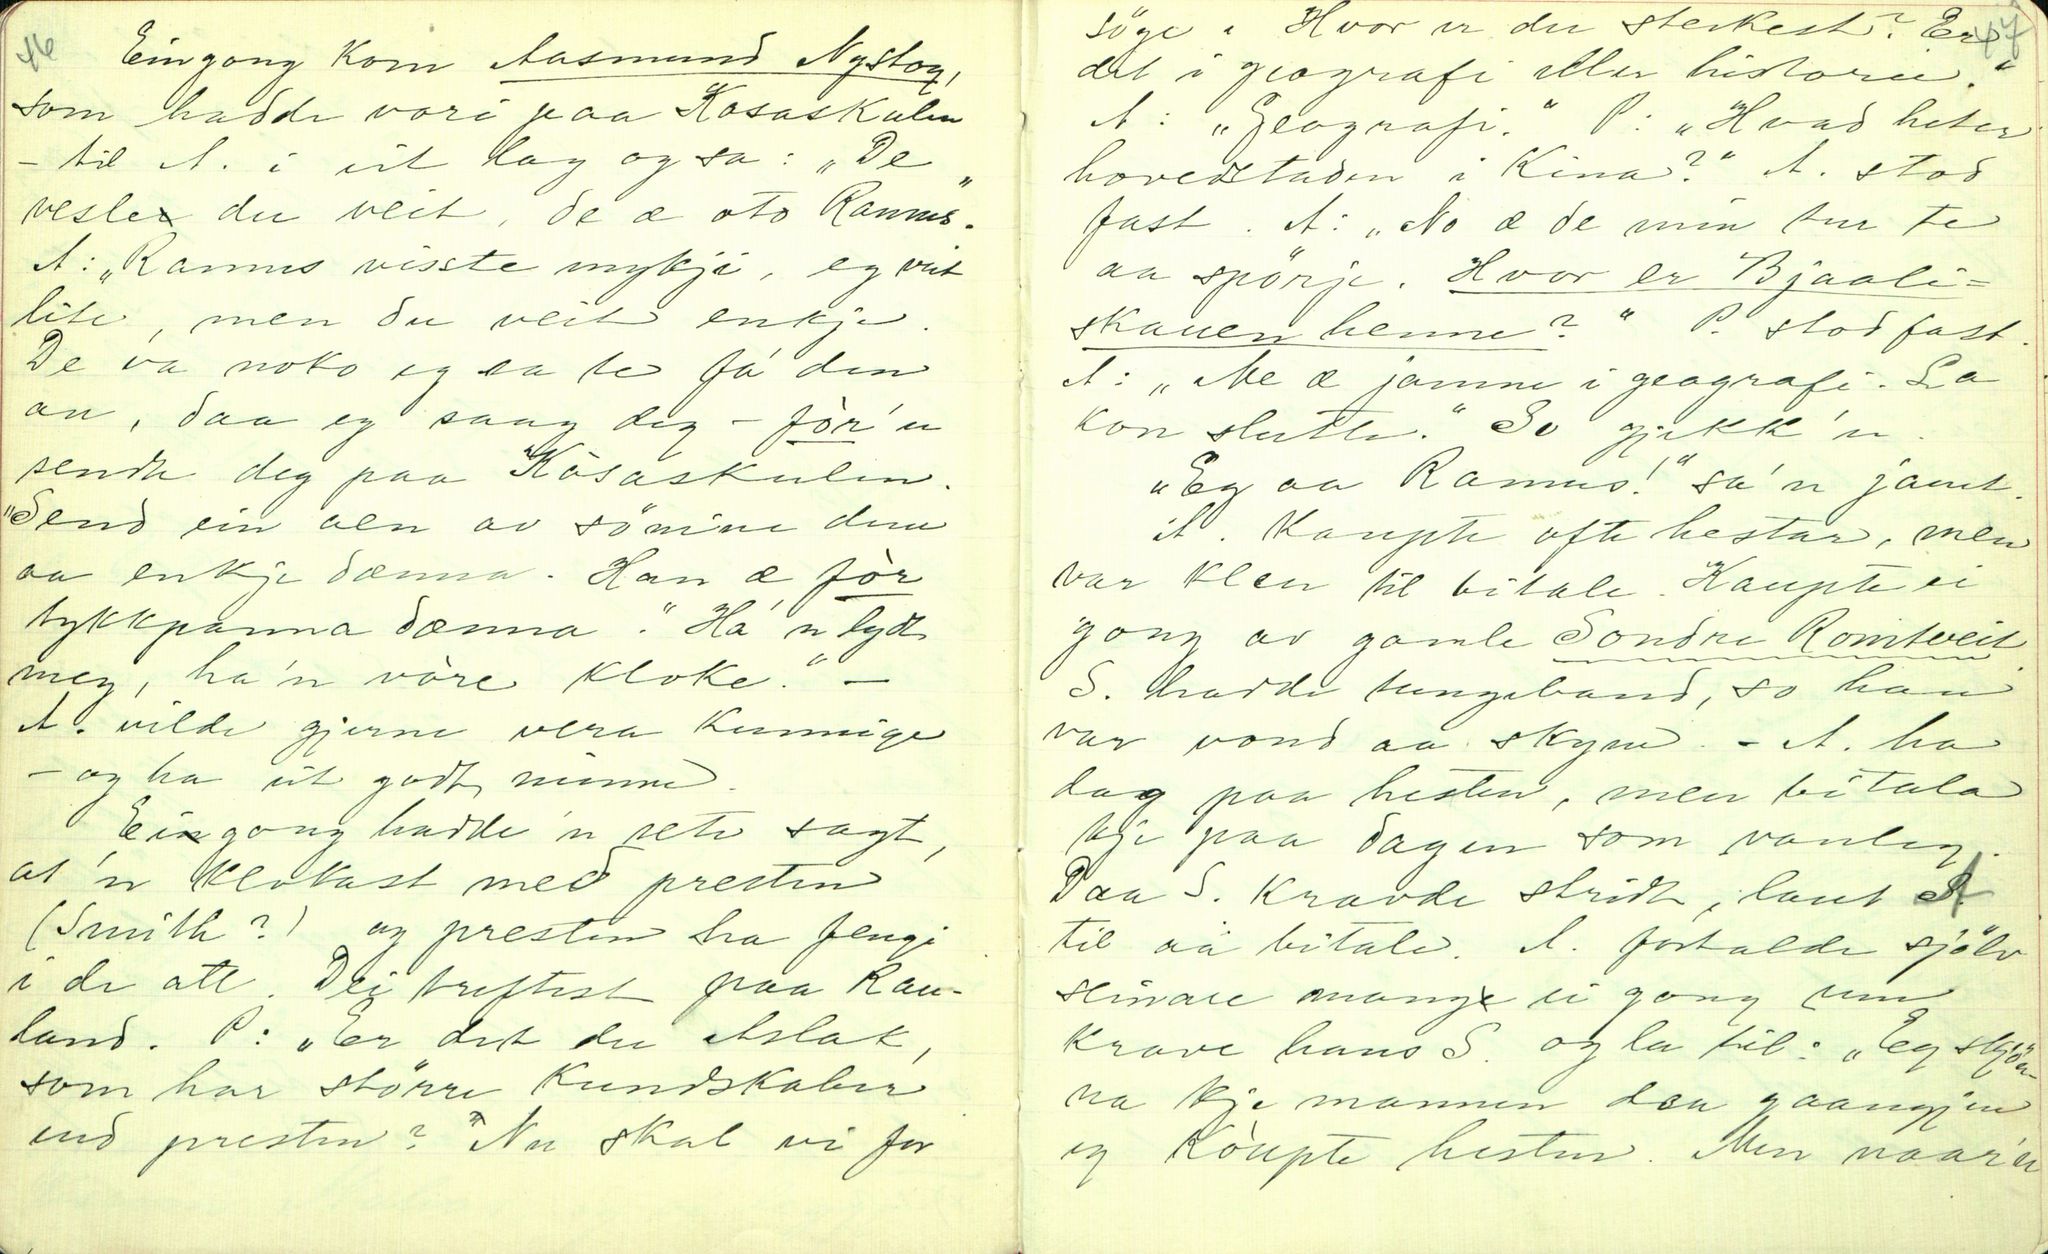 46
Eingong kom Aasmund Nystog,
som hadde vori paa Kosaskulen
- til A. i eit lag og sa: „De
vesle du veit, de æ oto Ramus."
A: „Ramus visste mykji, eg veit
lite, men du veit enkje.
De va noko eg sa te få den
an, daa eg saag deg - fòr'n
sendte deg paa Kòsaskulen.
"Send ein aen av sönine dine
aa enkje dænna. Han æ fòr
tykkpanna dænna." Ha'n lydt
meg, ha'n vòre kloke." -
A. vilde gjerne vera kunnige
- og ha eit godt minne.
Eingong hadde'n rete sagt,
at'n klokast med presten
(Smith?) og presten ha fengi
i de att. Dei treftest paa Rau-
land. P: „Er det du Aslak,
som har större kundskaber
end presten? Nu skal vi for
47
söge. Hvor er du sterkest? Er
det i geografi eller historie."
A: „Geografi." P: „Hvad heter
hovedstaden i Kina?" A. stod
fast. A: „No æ de min tur te
aa spörje. Hvor er Bjaali-
skauen henne?" P. stod fast.
A: „Me æ jamne i geografi. La
kon slutte." So gjekk'n.
„Eg aa Ramus!" sa'n jamt.
A. kaupte ofte hestar, men
var klen til bitale. Kaupte ei
gong av gamle Sondre Romtveit.
S. hadde tungeband, so han
var vond aa skyne. - A. ha
dag paa hesten, men bitala
kje paa dagen som vanleg.
Daa S. kravde stridt, laut A
til aa bitale. A. fortalde sjölv
seinare mange ei gong um
krave hans S. og la til: „Eg skjön-
na kje mannen daa gaangjen
eg kòupte hesten. Men naar'n